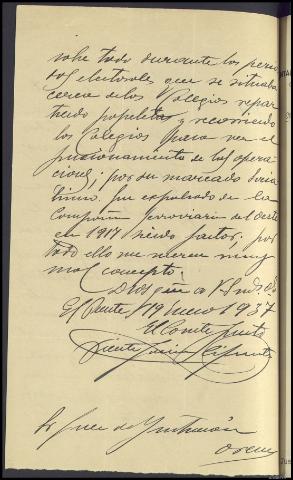 sobre todo durante los perio
dos electorales que se situaba
cerca de los Colegios repar
tiendo papeletas y recorriendo
los Colegios para ver el
funcionamiento de las opera
ciones; por su marcado
fue expulsado de la
Compañia ferroviaria del Oeste
en 1917 siendo factor; por
todo ello me merece muy
mal concepto.
Dios gue a V.
El Puente 19 Enero 1937
El Comte Puesto
Vicente Cifuentes
Sr Juez de Instrucción
Orense